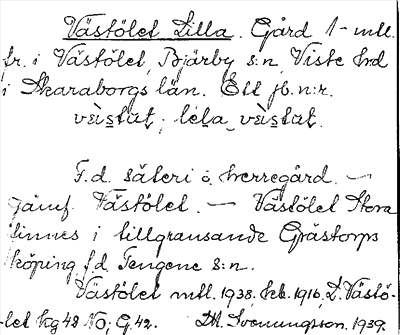 Västölet Lilla. Gård 1 - mtl.
fr. i Västölet, Bjärby s:n, Viste hd
i Skaraborgs län. Ett jb. n:r.
vàstɷt, lɩla vàstɷt.
F.d. säteri o. herregård. —
Jämf. Västölet. — Västölet Stora
finnes i tillgränsande Grästorps
köping f.d. Tengene s:n.
Västölet mtl. 1938. hb. 1916, L. Västö-
let kg 42 NO; G. 42. D. Svenningsson. 1939.